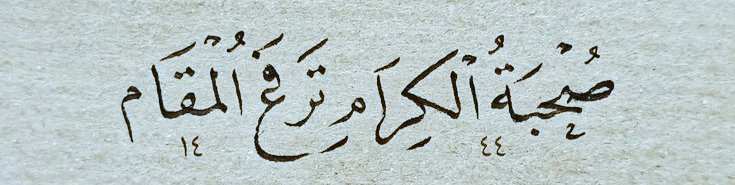 صُحْبَةُ الْكِرَامِ تَرْفَعُ الْمَقَام
١٤٤٤